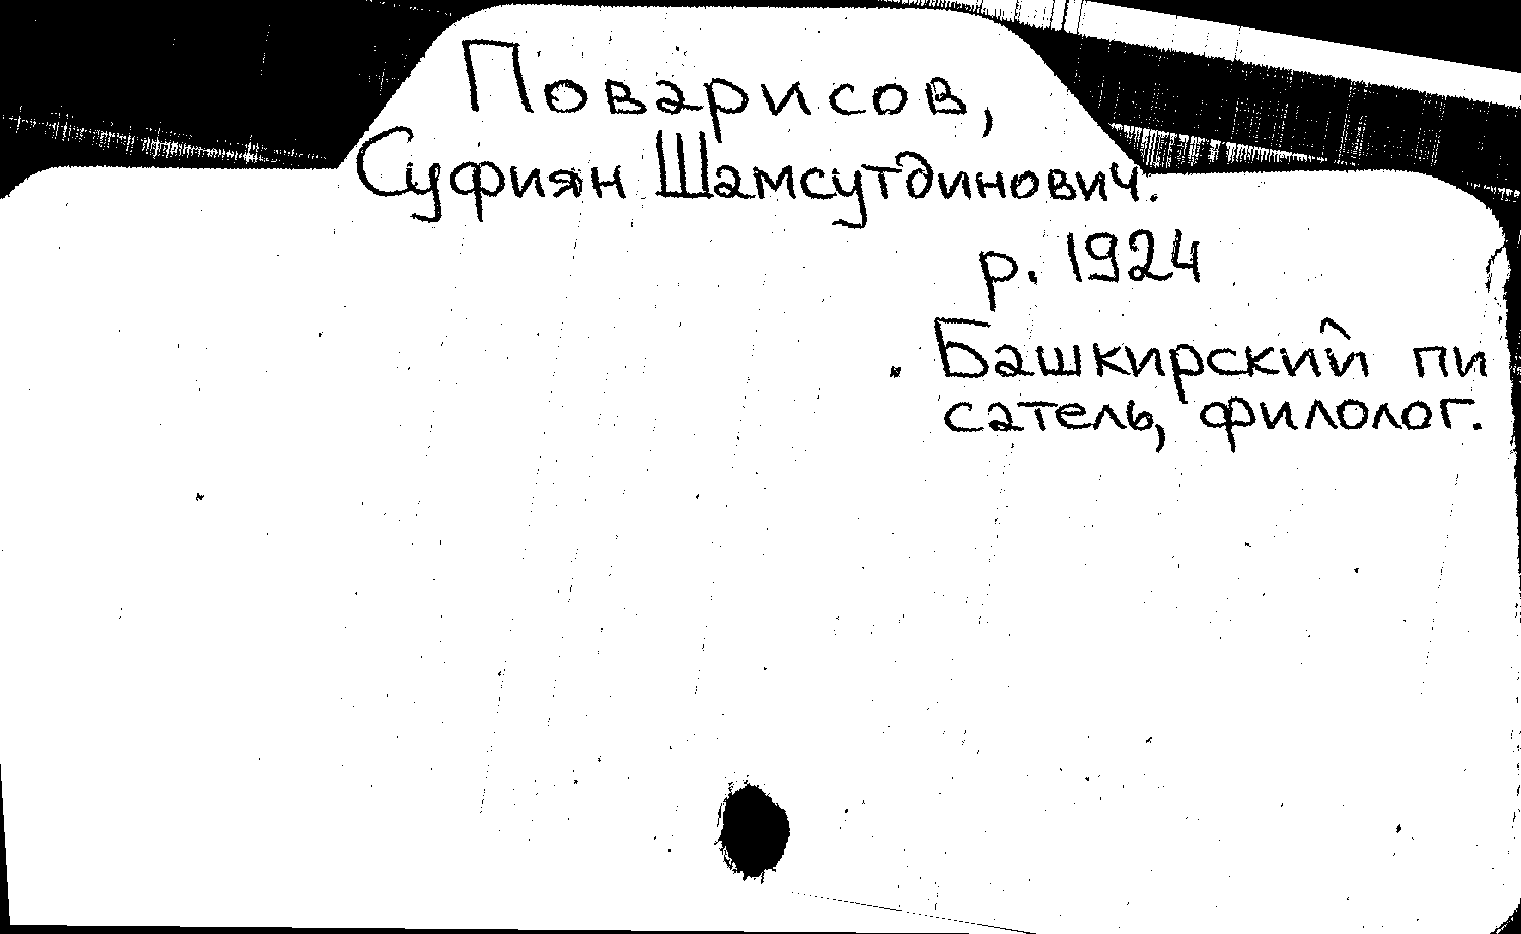 Поварисов,
Суфиян Шамсутдинович.
р. 1924
Башкирский пи
сатель, филолог.